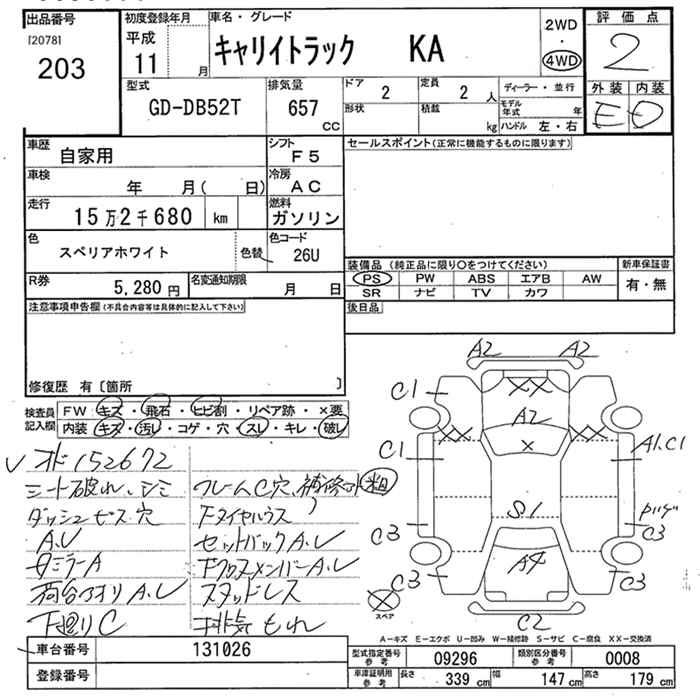 出品番号
[2078]
203
初度登録年月
平成
11 月
車名・グレード
キャリイトラック KA
2WD
・
4WD
評価点
2
外装 内装
E D
型式
GD-DB52T
排気量
657
CC
ドア
2
形状
定員
2 人
積載
kg
ディーラー・並行
モデル年式 年
ハンドル 左・右
車歴
自家用
シフト
F5
車検
年 月( 日)
冷房
AC
走行
15万2千680 km
燃料
ガソリン
色
スペリアホワイト
色替
色コード
26U
R券
5,280 円
名変通知期限
月 日
セールスポイント(正常に機能するものに限ります)
装備品 (純正品に限り○をつけてください)
PS PW ABS エアB AW
SR ナビ TV カワ
新車保証書
有・無
後日品
注意事項申告欄(不具合内容等は具体的に記入して下さい)
修復歴 有〔箇所 〕
検査員記入欄
FW キズ・飛石・ヒビ割・リペア跡・×要
内装 キズ・汚レ・コゲ・穴・スレ・キレ・破レ
オド152672
シート破れ、シミ
ダッシュビス穴
A.U
ミラーA
荷台アオリA.U
下廻りC
フレームC穴、補修ｱﾄ粗
Fタイヤハウス
セットバックA.U
FクロスメンバーA.U
スタッドレス
排気もれ
A2 A2
C1
XX
A2
XX XX
X
C1
A1.C1
S1
C3
C3
A4
C3
C3
C2
スペア
A－キズ E－エクボ U－凹み W－補修跡 S－サビ C－腐食 XX－交換済
車台番号
131026
登録番号
型式指定番号
参考
09296
類別区分番号
参考
0008
車庫証明用
参考
長さ 339 cm
幅 147 cm
高さ 179 cm